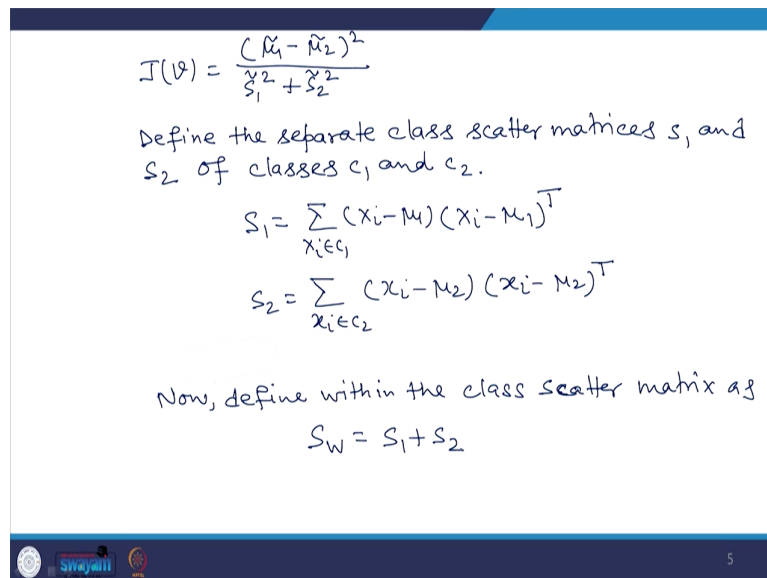 J(v) = (μ̃₁ - μ̃₂)² / (s̃₁² + s̃₂²)
Define the separate class scatter matrices s₁ and
S₂ of classes c₁ and c₂.
S₁ = Σ (xi - μ₁) (xi - μ₁)ᵀ
xi∈C₁
S₂ = Σ (xi - μ₂) (xi - μ₂)ᵀ
xi∈C₂
Now, define within the class scatter matrix as
Sw = S₁ + S₂
swayam
5